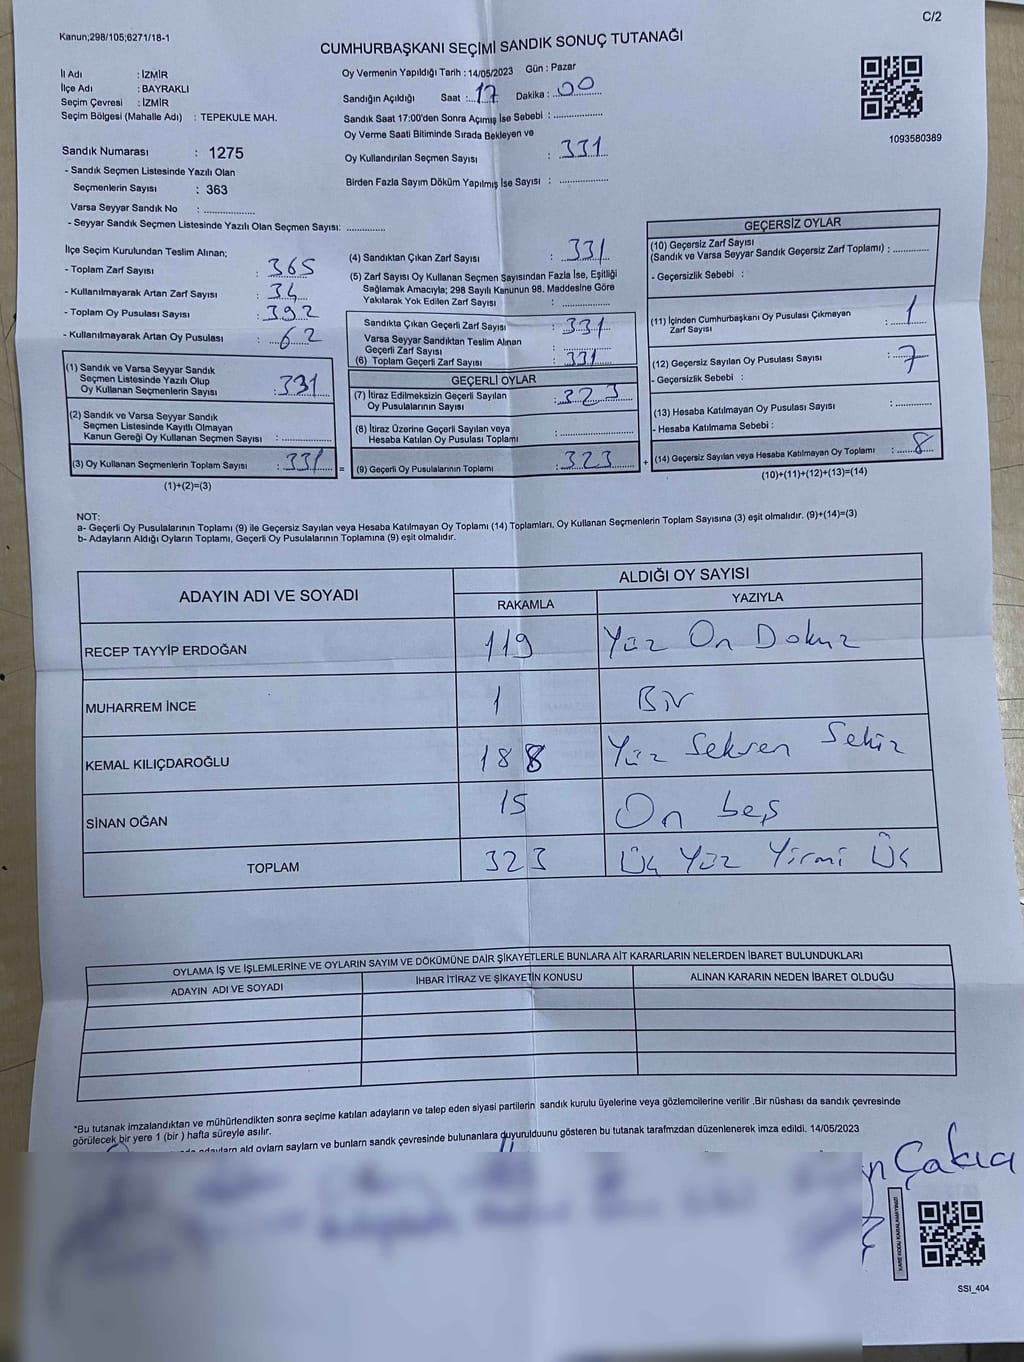 C/2
Kanun;298/105;6271/18-1
CUMHURBAŞKANI SEÇİMİ SANDIK SONUÇ TUTANAĞI
İl Adı : İZMİR
İlçe Adı : BAYRAKLI
Seçim Çevresi : İZMİR
Seçim Bölgesi (Mahalle Adı) : TEPEKULE MAH.
Sandık Numarası : 1275
- Sandık Seçmen Listesinde Yazılı Olan
Seçmenlerin Sayısı : 363
Varsa Seyyar Sandık No :
- Seyyar Sandık Seçmen Listesinde Yazılı Olan Seçmen Sayısı:
Oy Vermenin Yapıldığı Tarih : 14/05/2023 Gün : Pazar
Sandığın Açıldığı Saat : 17 Dakika : 00
Sandık Saat 17:00'den Sonra Açımış İse Sebebi :
Oy Verme Saati Bitiminde Sırada Bekleyen ve
Oy Kullandırılan Seçmen Sayısı : 331
Birden Fazla Sayım Döküm Yapılmış İse Sayısı :
1093580389
İlçe Seçim Kurulundan Teslim Alınan;
- Toplam Zarf Sayısı : 365
- Kullanılmayarak Artan Zarf Sayısı : 34
- Toplam Oy Pusulası Sayısı : 392
- Kullanılmayarak Artan Oy Pusulası : 62
(1) Sandık ve Varsa Seyyar Sandık
Seçmen Listesinde Yazılı Olup
Oy Kullanan Seçmenlerin Sayısı : 331
(2) Sandık ve Varsa Seyyar Sandık
Seçmen Listesinde Kayıtlı Olmayan
Kanun Gereği Oy Kullanan Seçmen Sayısı :
(3) Oy Kullanan Seçmenlerin Toplam Sayısı : 331
(1)+(2)=(3)
=
(4) Sandıktan Çıkan Zarf Sayısı : 331
(5) Zarf Sayısı Oy Kullanan Seçmen Sayısından Fazla İse, Eşitliği
Sağlamak Amacıyla; 298 Sayılı Kanunun 98. Maddesine Göre
Yakılarak Yok Edilen Zarf Sayısı :
Sandıkta Çıkan Geçerli Zarf Sayısı : 331
Varsa Seyyar Sandıktan Teslim Alınan
Geçerli Zarf Sayısı :
(6) Toplam Geçerli Zarf Sayısı : 331
GEÇERLİ OYLAR
(7) İtiraz Edilmeksizin Geçerli Sayılan
Oy Pusulalarının Sayısı : 323
(8) İtiraz Üzerine Geçerli Sayılan veya
Hesaba Katılan Oy Pusulası Toplamı :
(9) Geçerli Oy Pusulalarının Toplamı : 323
+
GEÇERSİZ OYLAR
(10) Geçersiz Zarf Sayısı
(Sandık ve Varsa Seyyar Sandık Geçersiz Zarf Toplamı) :
- Geçersizlik Sebebi :
(11) İçinden Cumhurbaşkanı Oy Pusulası Çıkmayan
Zarf Sayısı : 1
(12) Geçersiz Sayılan Oy Pusulası Sayısı : 7
- Geçersizlik Sebebi :
(13) Hesaba Katılmayan Oy Pusulası Sayısı :
- Hesaba Katılmama Sebebi :
(14) Geçersiz Sayılan veya Hesaba Katılmayan Oy Toplamı : 8
(10)+(11)+(12)+(13)=(14)
NOT:
a- Geçerli Oy Pusulalarının Toplamı (9) ile Geçersiz Sayılan veya Hesaba Katılmayan Oy Toplamı (14) Toplamları, Oy Kullanan Seçmenlerin Toplam Sayısına (3) eşit olmalıdır. (9)+(14)=(3)
b- Adayların Aldığı Oyların Toplamı, Geçerli Oy Pusulalarının Toplamına (9) eşit olmalıdır.
ADAYIN ADI VE SOYADI ALDIĞI OY SAYISI
RAKAMLA YAZIYLA
RECEP TAYYİP ERDOĞAN 119 Yüz On Dokuz
MUHARREM İNCE 1 Bir
KEMAL KILIÇDAROĞLU 188 Yüz Seksen Sekiz
SİNAN OĞAN 15 On beş
TOPLAM 323 Üç Yüz Yirmi Üç
OYLAMA İŞ VE İŞLEMLERİNE VE OYLARIN SAYIM VE DÖKÜMÜNE DAİR ŞİKAYETLERLE BUNLARA AİT KARARLARIN NELERDEN İBARET BULUNDUKLARI
ADAYIN ADI VE SOYADI İHBAR İTİRAZ VE ŞİKAYETİN KONUSU ALINAN KARARIN NEDEN İBARET OLDUĞU
*Bu tutanak imzalandıktan ve mühürlendikten sonra seçime katılan adayların ve talep eden siyasi partilerin sandık kurulu üyelerine veya gözlemcilerine verilir .Bir nüshası da sandık çevresinde
görülecek bir yere 1 (bir ) hafta süreyle asılır.
ald oyların saylarn ve bunlarn sandk çevresinde bulunanlara duyurulduunu gösteren bu tutanak tarafmzdan düzenlenerek imza edildi. 14/05/2023
Çakıcı
SSI_404